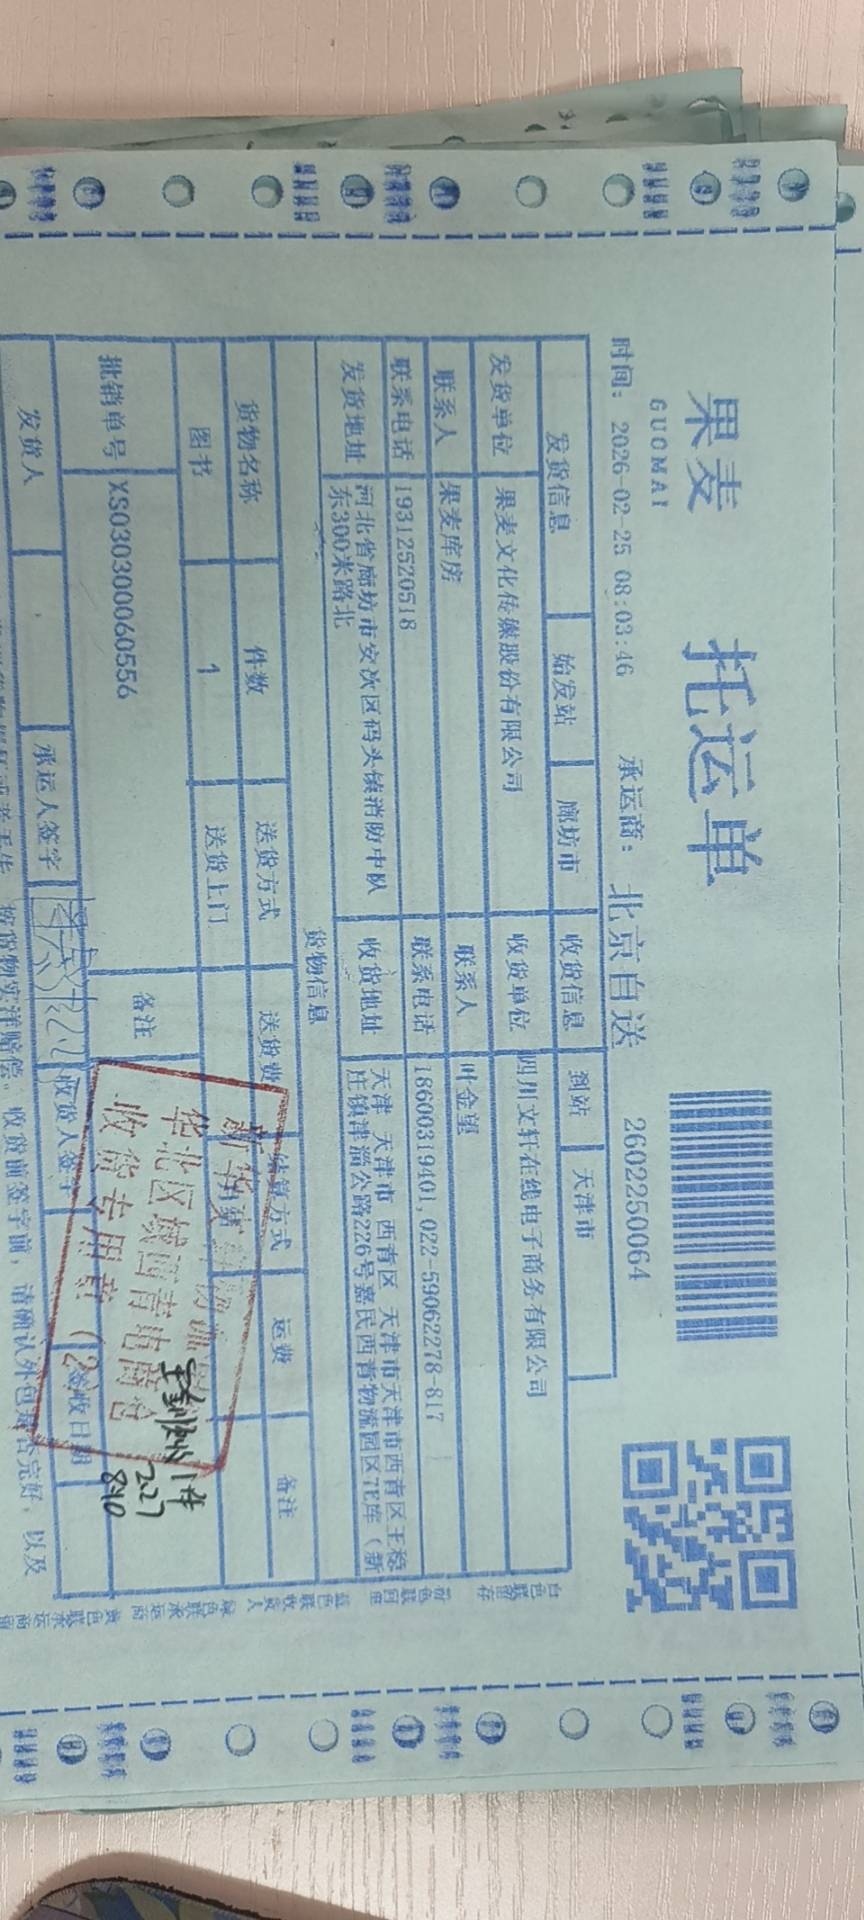 果麦
GUOMAI
托运单
时间: 2026-02-25 08:03:46 承运商: 北京自送 2602250064
发货信息 始发站 廊坊市 收货信息 到站 天津市
发货单位 果麦文化传媒股份有限公司 收货单位 四川文轩在线电子商务有限公司
联系人 果麦库房 联系人 叶金望
联系电话 19312520518 联系电话 18600319401,022-59062278-817
发货地址 河北省廊坊市安次区码头镇消防中队
东300米路北
收货地址 天津 天津市 西青区 天津市天津市西青区王稳
庄镇津淄公路226号嘉民西青物流园区7E库（新
货物信息
货物名称 件数 送货方式 送货费 结算方式 运费 备注
图书 1 送货上门
批销单号 XS030300060556 备注
发货人 承运人签字 收货人签字 签收日期
华北区域西青电商仓
收货专用章(2)
1件
2.27
8:40
被货物实洋赔偿。收货前签字前，请确认外包是否完好，以及
白色联留存
蓝色联收货人
绿色联承运商
黄色联承运商留